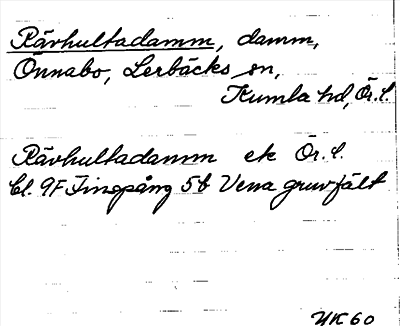 Rävhultadamm, damm,
Önnabo, Lerbäcks sn,
Kumla hd, Ör. l.
Rävhultadamm ek Ör. l.
bl. 9F Finspång 5b Vena gruvfält
UK 60